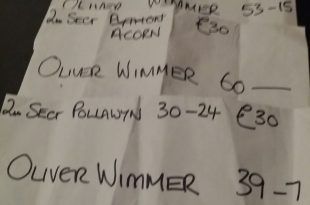 OLIVER WIMMER 53-15
2nd SECT PLAYMON €30
ACORN
OLIVER WIMMER 60 —
2nd SECT POLLAWYN 30-24 €30
OLIVER WIMMER 39-7